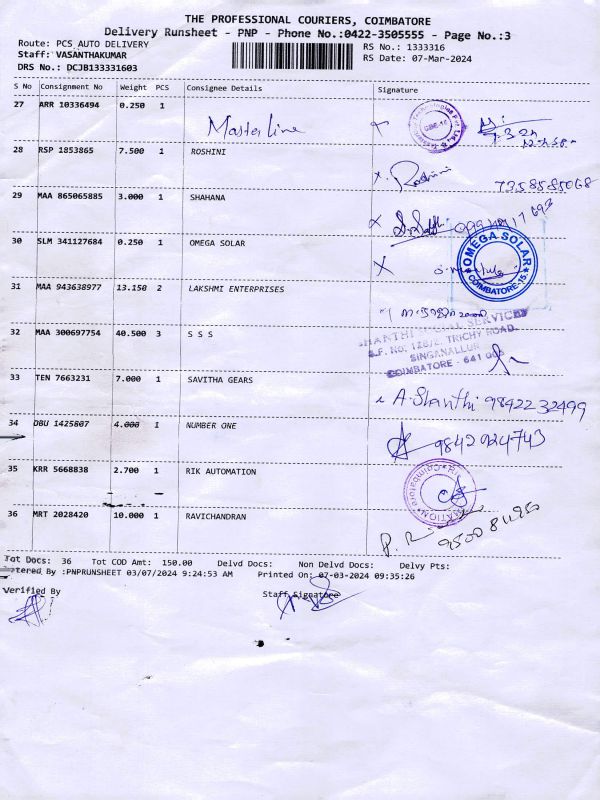 THE PROFESSIONAL COURIERS, COIMBATORE
Delivery Runsheet - PNP - Phone No.:0422-3505555 - Page No.:3
Route: PCS AUTO DELIVERY
RS No.: 1333316
Staff: VASANTHAKUMAR
RS Date: 07-Mar-2024
DRS No.: DCJB133331603
S No Consignment No Weight PCS Consignee Details Signature
27 ARR 10336494 0.250 1
Masterline
28 RSP 1853865 7.500 1 ROSHINI
Roshini
7358585068
29 MAA 865065885 3.000 1 SHAHANA
30 SLM 341127684 0.250 1 OMEGA SOLAR
OMEGA SOLAR
COIMBATORE-15
31 MAA 943638977 13.150 2 LAKSHMI ENTERPRISES
32 MAA 300697754 40.500 3 S S S
S.F. No. 128/2, TRICHY ROAD,
SINGANALLUR
COIMBATORE - 641 005
33 TEN 7663231 7.000 1 SAVITHA GEARS
A. Shanthi 9842232499
34 DBU 1425807 4.000 1 NUMBER ONE
9842924743
35 KRR 5668838 2.700 1 RIK AUTOMATION
36 MRT 2028420 10.000 1 RAVICHANDRAN
Tot Docs: 36 Tot COD Amt: 150.00 Delvd Docs: Non Delvd Docs: Delvy Pts:
Entered By :PNPRUNSHEET 03/07/2024 9:24:53 AM Printed On: 07-03-2024 09:35:26
Verified By
Staff Signature